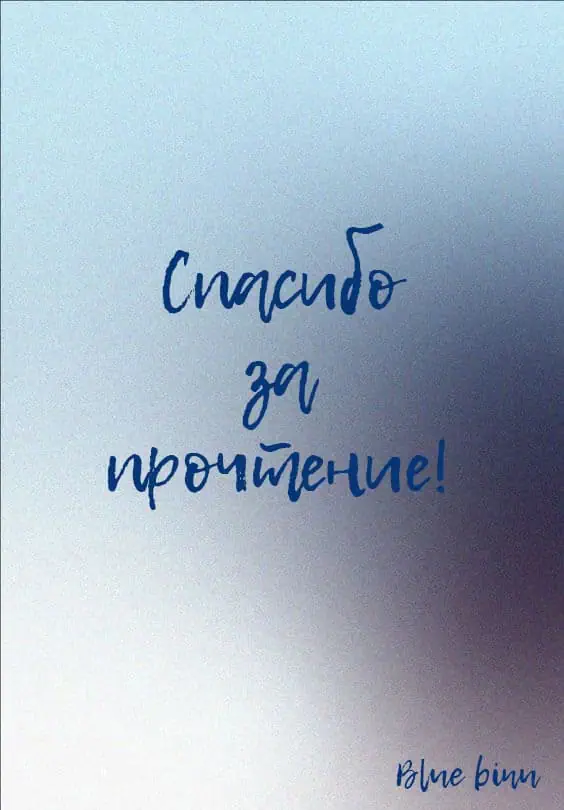 Спасибо
за
прочтение!
Blue binn